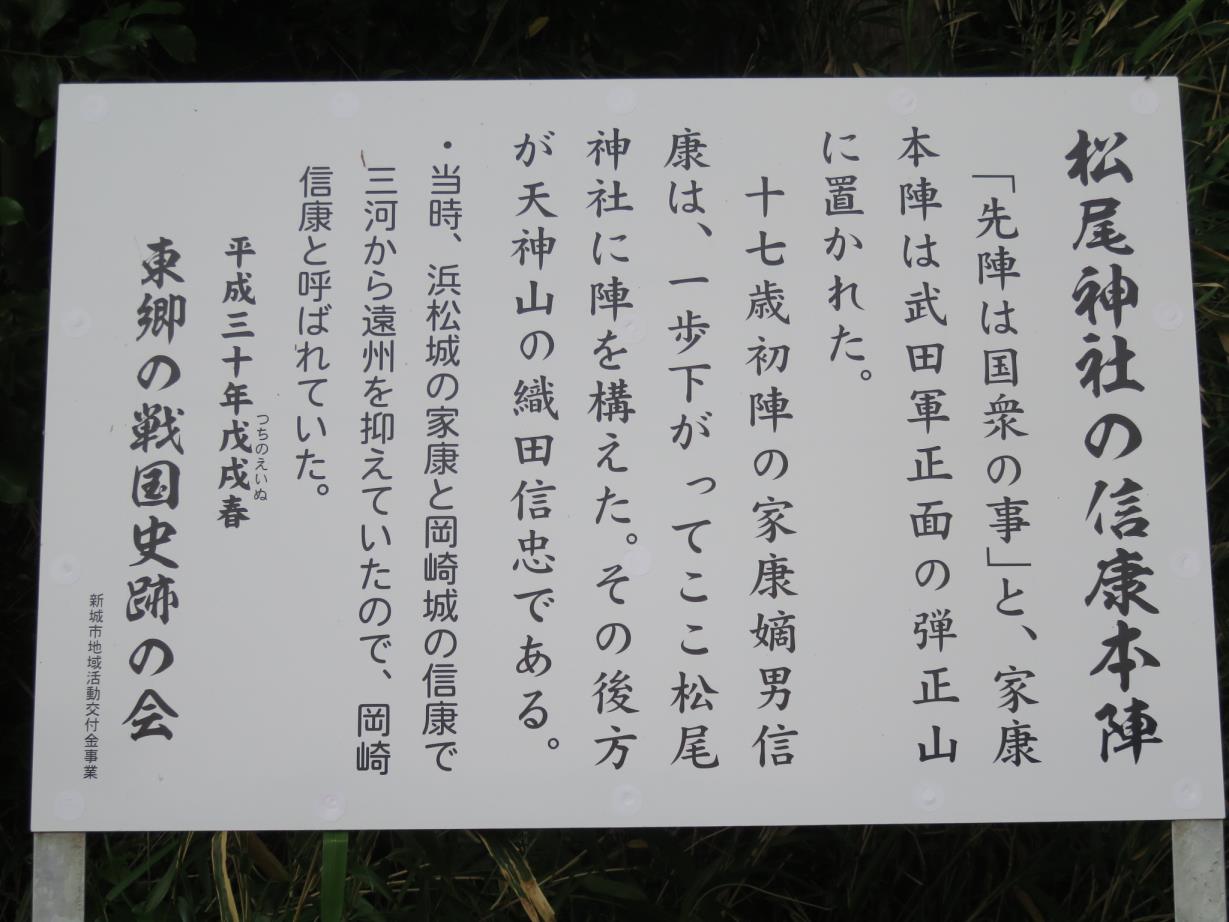 松尾神社の信康本陣
「先陣は国衆の事」と、家康
本陣は武田軍正面の弾正山
に置かれた。
十七歳初陣の家康嫡男信
康は、一歩下がってここ松尾
神社に陣を構えた。その後方
が天神山の織田信忠である。
・当時、浜松城の家康と岡崎城の信康で
三河から遠州を抑えていたので、岡崎
信康と呼ばれていた。
平成三十年戊戌春
つちのえいぬ
東郷の戦国史跡の会
新城市地域活動交付金事業